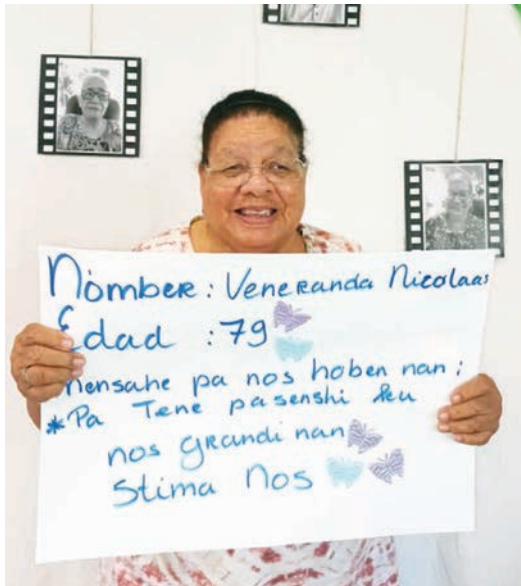 Nòmber: Veneranda Nicolaas
Edad : 79
Mensahe pa nos hoben nan :
*Pa Tene pasenshi ku
nos grandi nan
Stima Nos